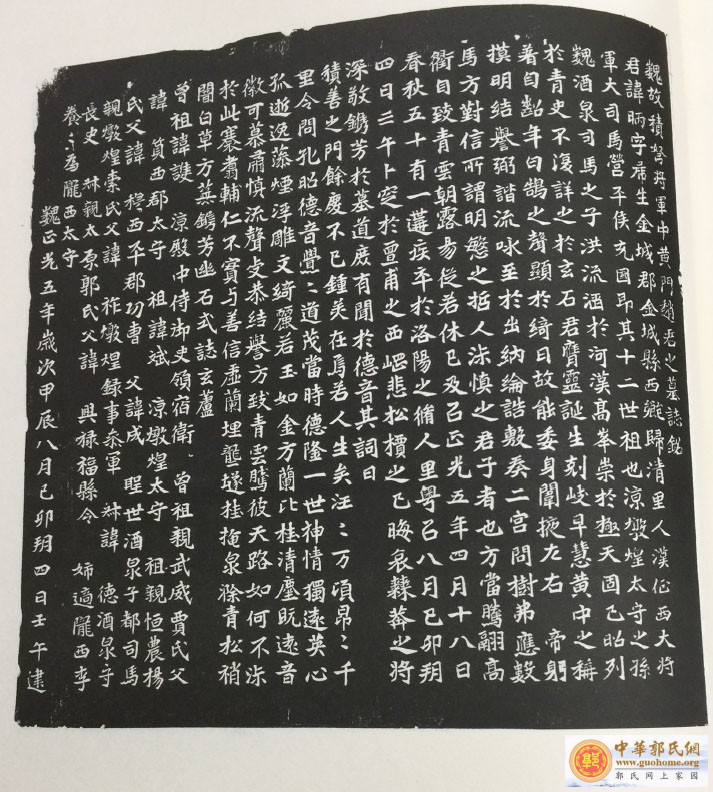 魏故積弩將軍中黄門趙君之墓誌銘
君諱昞字㞕生金城郡金城縣西鄉歸清里人漢征西大將
軍大司馬營平侯充國即其十二世祖也涼燉煌太守之孫
魏酒泉司馬之子洪流涵於河漢高峯崇於極天固已昭列
於青史不復詳之於玄石君膺靈誕生剋岐早慧黄中之稱
著自齠年曰鵠之聲顯於綺日故能委身闈掖左右 帝躬
摸明結譽弼諧流咏至於出納綸誥敷奏二宫問樹弗應數
馬方對信所謂明慜之哲人淑慎之君子者也方當騰翮高
衢自致青雲朝露易從若休已及㠯正光五年四月十八日
春秋五十有一遘疾卒於洛陽之脩人里粤㠯八月己卯朔
四日壬午卜窆於亶甫之西岷悲松檟之已晦哀蘕莽之將
深敬鐫芳於墓道庶有聞於德音其詞曰
積善之門餘慶不已鍾美在焉若人生矣汪〻万頃昂〻千
里令問孔昭德音亹〻道茂當時德隆一世神情獨遠英心
孤逝逸藻煙浮雕文綺麗若玉如金方蘭比桂清塵既遠音
徽可慕肅慎流聲虔恭結譽方致青雲騰彼天路如何不淑
於此褰翥輔仁不實与善信虚蘭埋壟隧桂掩泉滌青松稍
闇白草方蕪鐫芳幽石式誌玄廬
曾祖諱䜅 涼殿中侍御史領宿衛 曾祖親武威賈氏父
諱 㒷西郡太守 祖諱斌 涼燉煌太守 祖親恒農楊
氏父諱 穆西平郡功曹 父諱成 聖世酒泉子都司馬
親燉煌索氏父諱 祚燉煌録事參軍 叔諱 德酒泉守
長史 叔親太原郭氏父諱 興禄福縣令 姉適隴西李
養〻爲隴西太守
魏正光五年歲次甲辰八月己卯朔四日壬午建
中華郭氏網
www.guohome.org
郭氏网上家园